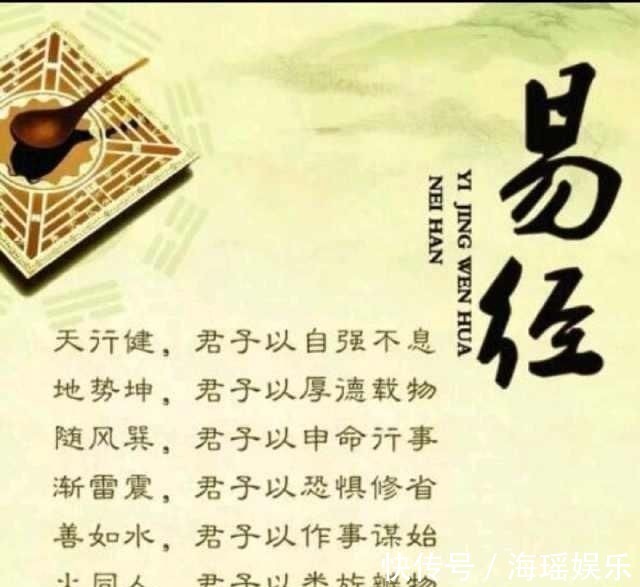 易经
YI JING WEN HUA
NEI HAN
天行健，君子以自强不息
地势坤，君子以厚德载物
随风巽，君子以申命行事
渐雷震，君子以恐惧修省
善如水，君子以作事谋始
火同人，君子以类族辨物
快传号 / 海瑶娱乐